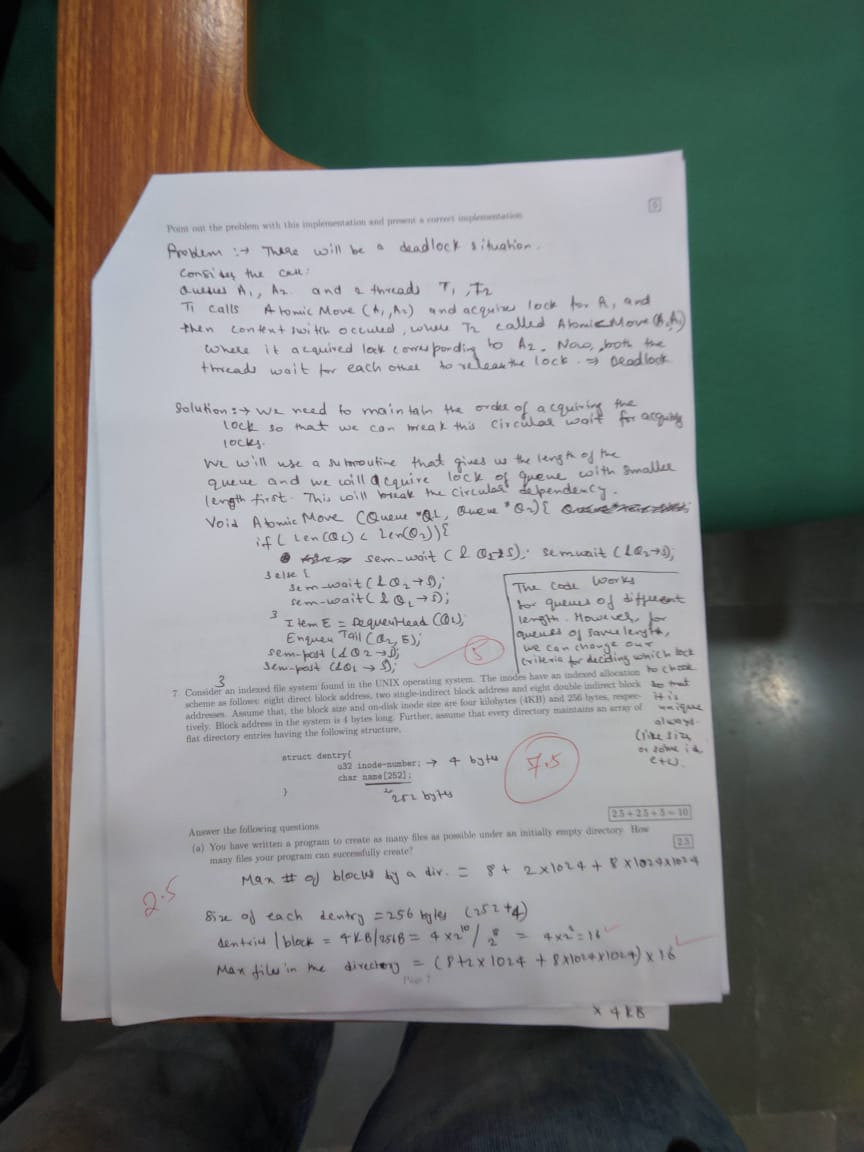 Point out the problem with this implementation and present a correct implementation
5
Problem :→ There will be a deadlock situation.
Consider the call:
Queues A1, A2 and 2 threads T1, T2
T1 calls Atomic Move (A1, A2) and acquires lock for A1 and
then context switch occured, where T2 called AtomicMove(A2,A1)
where it acquired lock corresponding to A2. Now, both the
threads wait for each other to release the lock. ⇒ Deadlock
Solution:→ We need to maintain the order of acquiring the
lock so that we can break this circular wait for acquiring
locks.
We will use a subroutine that gives us the length of the
queue and we will acquire lock of queue with smaller
length first. This will break the circular dependency.
Void Atomic Move (Queue *Q1, Queue *Q2){
if ( Len(Q1) < Len(Q2)){
sem-wait (& Q1→s); semwait (&Q2→s);
} else {
sem-wait (& Q2→s);
sem-wait (& Q1→s);
}
Item E = DequeuHead (Q1);
Enqueu Tail (Q2, E);
sem-post (&Q2→s);
sem-post (&Q1→s);
}
5
The code works
for queues of different
length. However, for
queues of same length,
we can change our
criteria for deciding which lock
to choose
so that
it is
unique
always.
(like size
or some id
etc).
7. Consider an indexed file system found in the UNIX operating system. The inodes have an indexed allocation
scheme as follows: eight direct block address, two single-indirect block address and eight double indirect block
addresses. Assume that, the block size and on-disk inode size are four kilobytes (4KB) and 256 bytes, respec-
tively. Block address in the system is 4 bytes long. Further, assume that every directory maintains an array of
flat directory entries having the following structure,
struct dentry{
u32 inode-number; → 4 bytes
char name[252];
252 bytes
}
7.5
2.5 + 2.5 + 5 = 10
Answer the following questions
(a) You have written a program to create as many files as possible under an initially empty directory. How
many files your program can successfully create?
2.5
Max # of blocks by a dir. = 8 + 2x1024 + 8x1024x1024
2.5
Size of each dentry = 256 bytes (252+4)
dentries / block = 4KB/256B = 4x2^10 / 2^8 = 4x2^2 = 16
Max files in the directory = (8+2x1024 + 8x1024x1024) x 16
Page 7
x 4KB